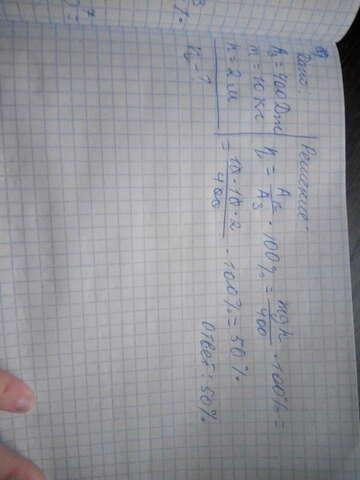 Дано:
Aз = 400 Дж
m = 10 кг
h = 2 м
η - ?
Решение:
η = Aп / Aз · 100% = mgh / 400 · 100% =
= 10 · 10 · 2 / 400 · 100% = 50%.
Ответ: 50%